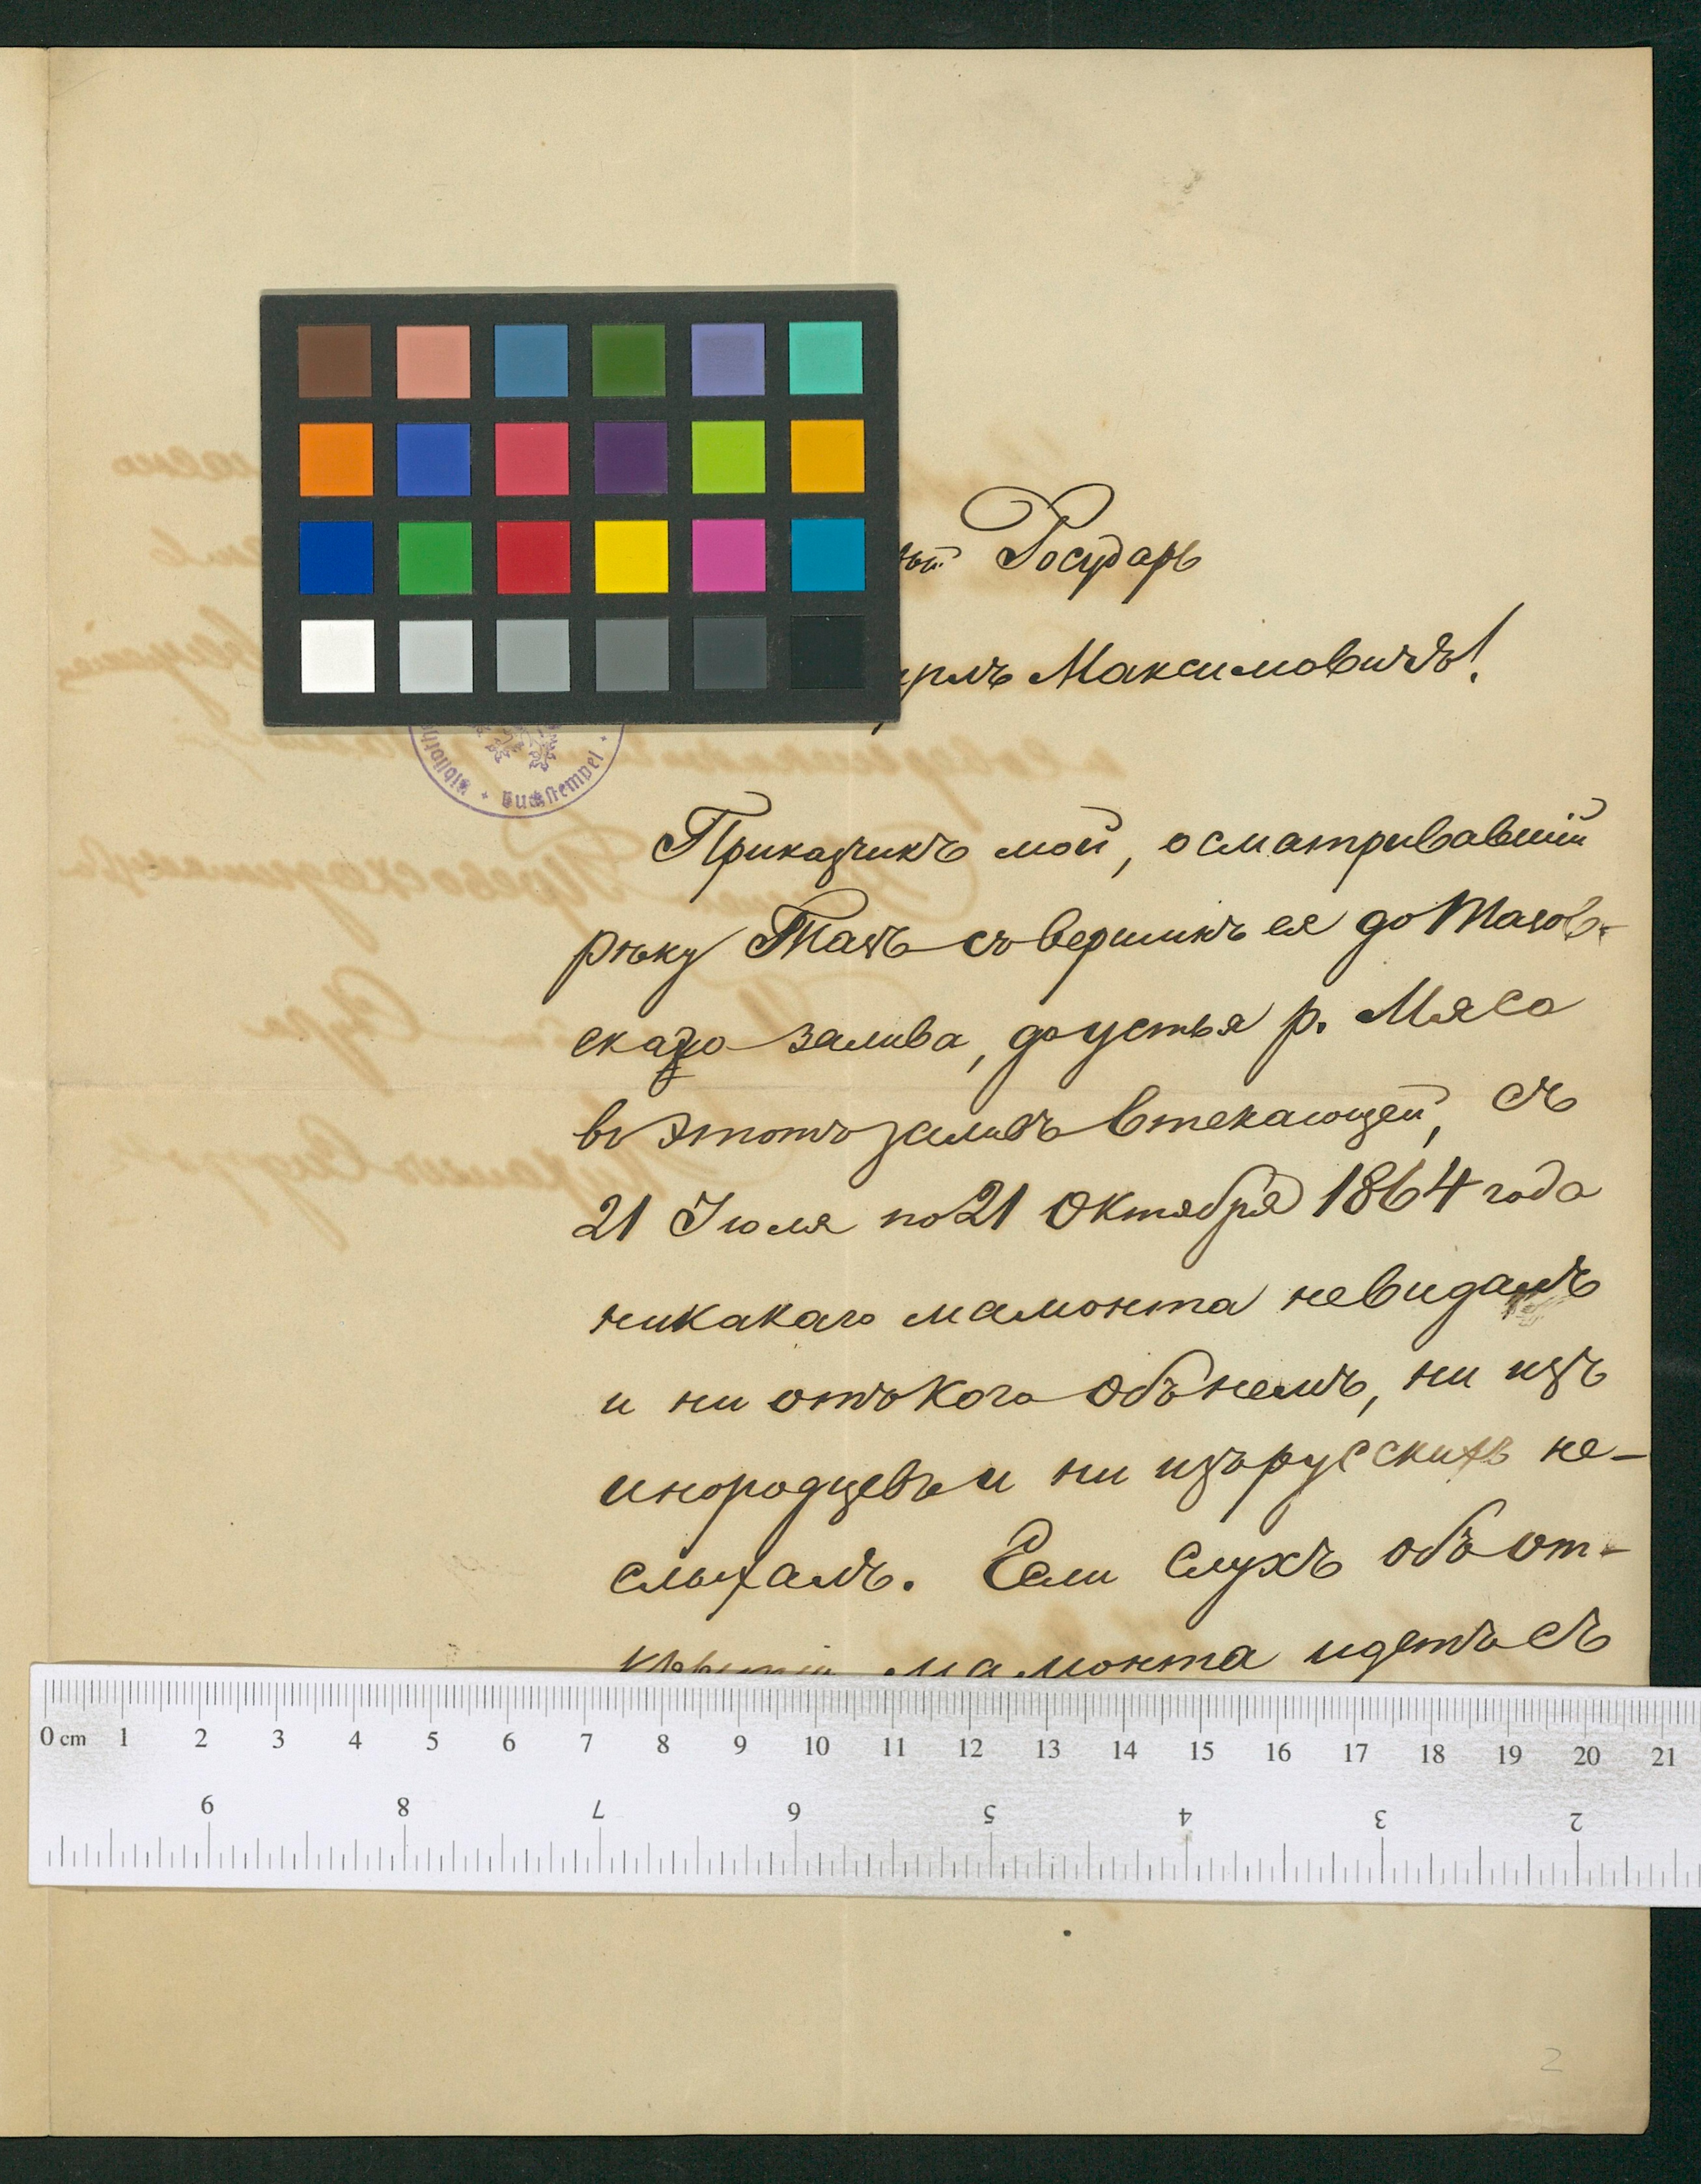 Государь
Максимовичъ!
Buchstempel
Приказчикъ мой, осматривавшій
рѣку Тазъ съ вершинъ ея до Тазов-
скаго залива, до устья р. Мяса
въ этотъ заливъ втекающей, съ
21 Іюля по 21 Октября 1864 года
никакаго мамонта невидалъ
и ни отъ кого объ немъ, ни изъ
инородцевъ и ни изъ русскихъ не-
слыхалъ. Если слухъ объ от-
мамонта идетъ съ
0 cm 1 2 3 4 5 6 7 8 9 10 11 12 13 14 15 16 17 18 19 20 21
9 8 7 6 5 4 3 2
2